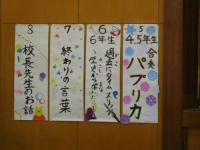 5
4.5年生
合奏
パプリカ
6
6年生
過去にタイムスリップ
7
終わりの言葉
8
校長先生のお話